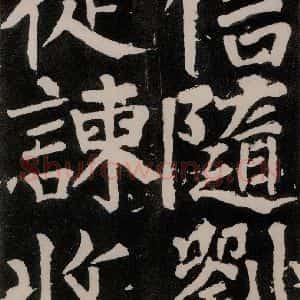 信隨劉
從諫將
Shufawang.CN